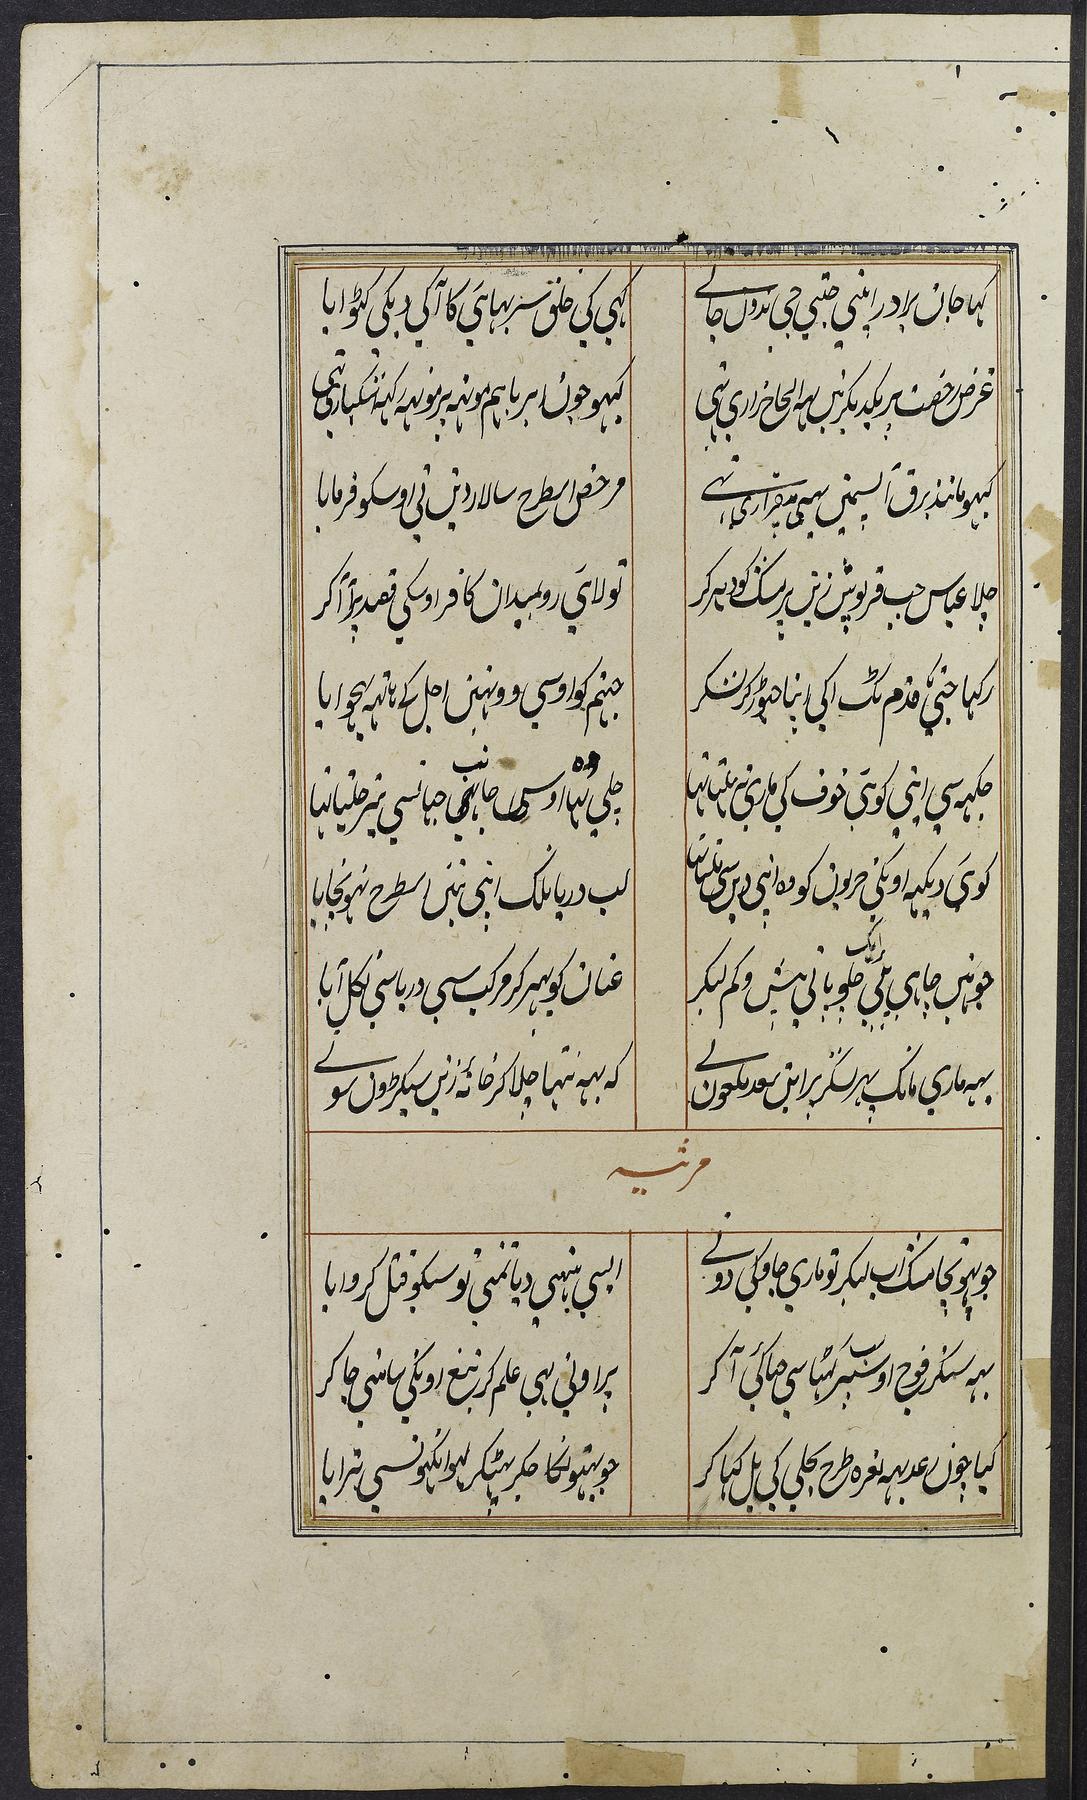 کہا جان برادر اپنی جیتی جی ندون جانے
کہی کی خلق سر بہائی کا آ کی دیکی کٹوایا
غرض رخصت پر یکدیکر نین بہہ الحاح زاری تہی
کبہو جون ابر باہم مونہہ پر مونہہ رکہہ اشکباری تہی
کبہو مانند برق آپسمین بہی بیقراری تہے
مرخص اسطرح سالار دین نی اوسکو فرمایا
چلا عباس جب قربوش زین پر مشک کو دہر کر
تو لای رو بمیدان کافر اوسکی قصد پر آ آ کر
رکہا جنی قدم ٹک اکی اپنا چہوڑ کر لشکر
جہنم کو اوسی وونہین اجل کے ہاتہہ بہجوایا
جکہہ سی اپنی کوئی خوف کی ماری نہ ہلتا تہا
چلی تہا وہ اوسی جانب جہانسی تیر چلتا تہا
کوئی دیکہہ اونکی حربون کو وہ اپنی دہن سی ٹلتا تہا
لب دریا تلک اپنی تئین اسطرح پہونچایا
جونہین چاہی پئی ایک چلو پانی بیش و کم لیکر
عنان کو پہیر کر مرکب سی دریا سی نکل آیا
یہہ ماری بانک پہر لشکر پر ابن سعد ملعون نے
کہ یہہ تنہا چلا کر خانہ زین سیکڑون سونے
مرثیہ
جو پہونچا مشک آب لیکر تو ماری جاوکی دونے
ایسی بنہی دیا تمنی تو سبکو قتل کروایا
یہہ سنکر فوج اوسپر سب کہٹا سی چہا کئی آ کر
پر اونی بہی علم کر تیغ اونکی سامنی جا کر
کیا جون رعد یہہ نعرہ طرح بجلی کی بل کہا کر
جو بہتونکا جکر پہٹکر لہو آنکہونسی تر آیا